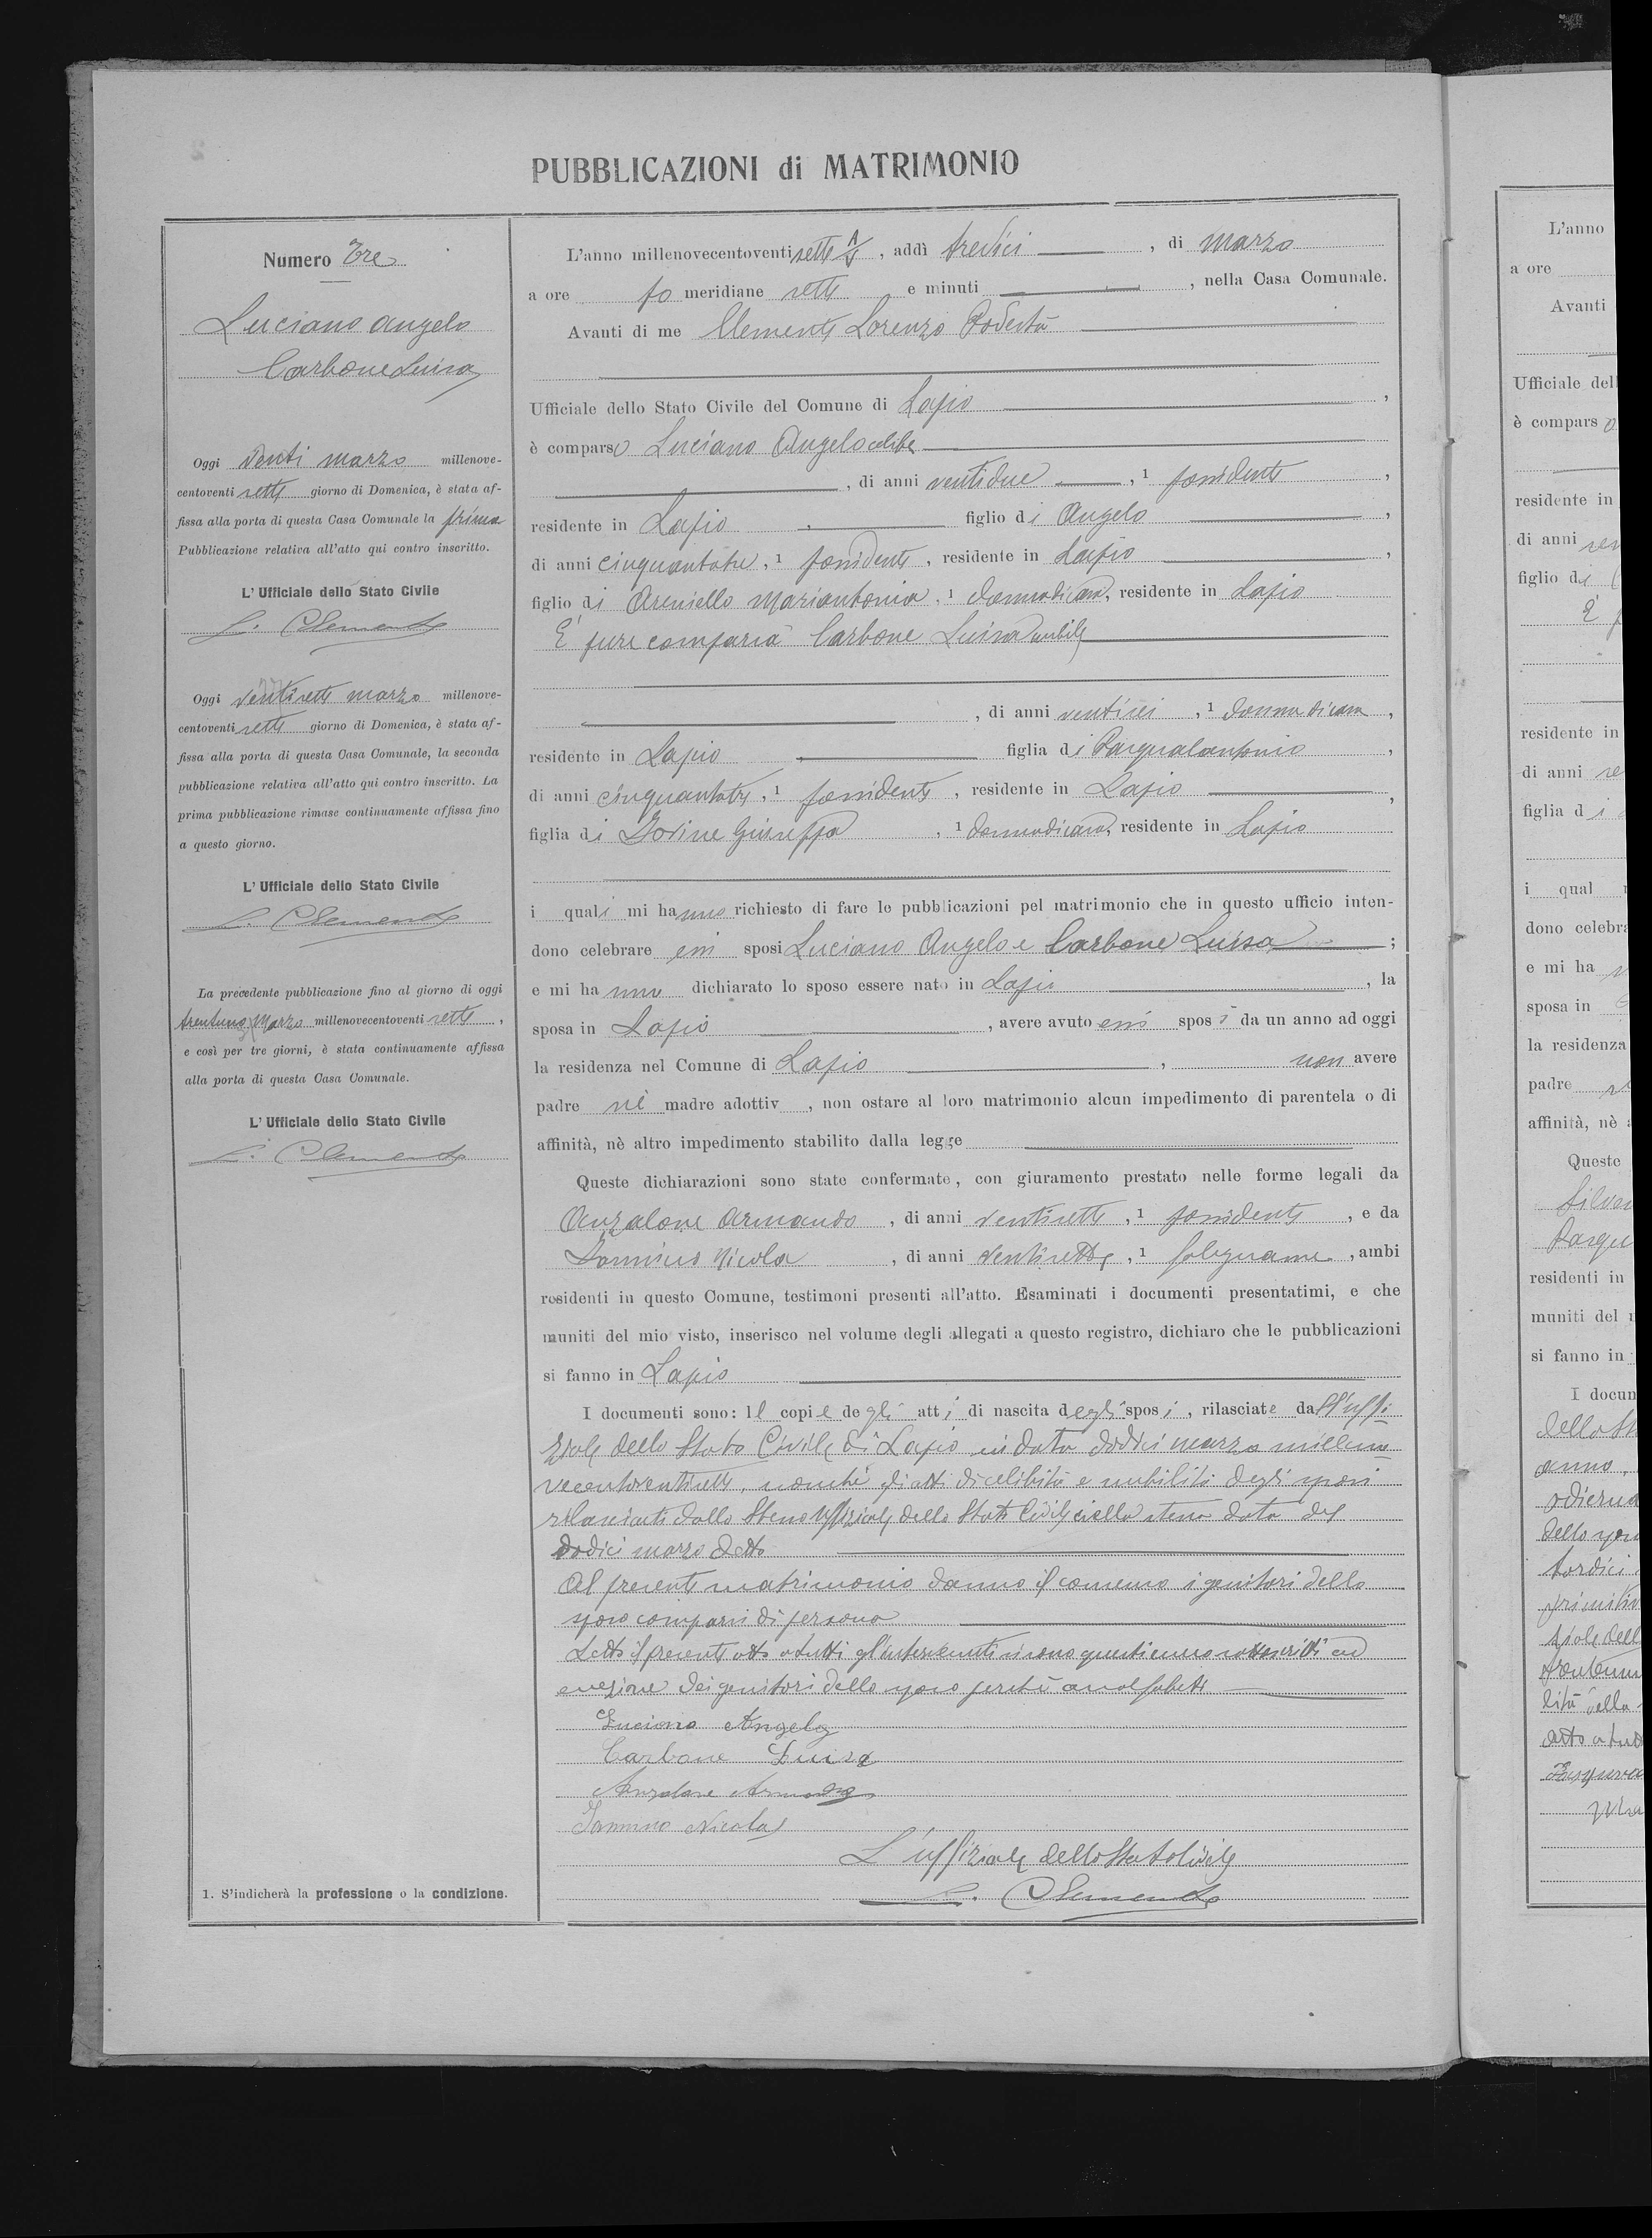 PUBBLICAZIONI di MATRIMONIO
Numero Tre
Luciano Angelo
Carbone Luisa
Oggi venti marzo millenove-
centoventi sette giorno di Domenica, è stata af-
fissa alla porta di questa Casa Comunale la prima
Pubblicazione relativa all'atto qui contro inscritto.
L'Ufficiale dello Stato Civile
L. Clemente
Oggi ventisette marzo millenove-
centoventi sette giorno di Domenica, è stata af-
fissa alla porta di questa Casa Comunale, la seconda
pubblicazione relativa all'atto qui contro inscritto. La
prima pubblicazione rimase continuamente affissa fino
a questo giorno.
L'Ufficiale dello Stato Civile
L. Clemente
La precedente pubblicazione fino al giorno di oggi
trentuno Marzo millenovecentoventi sette,
e così per tre giorni, è stata continuamente affissa
alla porta di questa Casa Comunale.
L'Ufficiale dello Stato Civile
L. Clemente
1. S'indicherà la professione o la condizione.
L'anno millenovecentoventi sette, addì tredici, di marzo
a ore po meridiane sette e minuti, nella Casa Comunale.
Avanti di me Clemente Lorenzo Podestà
Ufficiale dello Stato Civile del Comune di Lapio,
è comparso Luciano Angelo celibe
, di anni ventidue, 1 possidente,
residente in Lapio, figlio di Angelo,
di anni cinquantatre, 1 possidente, residente in Lapio,
figlio di Areniello Mariantonia, 1 donna di casa, residente in Lapio
È pure comparsa Carbone Luisa nubile
, di anni ventisei, 1 donna di casa,
residente in Lapio, figlia di Pasqualantonio,
di anni cinquantatre, 1 possidente, residente in Lapio,
figlia di Giuseppa, 1 donna di casa, residente in Lapio
i quali mi hanno richiesto di fare le pubblicazioni pel matrimonio che in questo ufficio inten-
dono celebrare essi sposi Luciano Angelo e Carbone Luisa;
e mi hanno dichiarato lo sposo essere nato in Lapio, la
sposa in Lapio, avere avuto essi sposi da un anno ad oggi
la residenza nel Comune di Lapio, non avere
padre nè madre adottiv, non ostare al loro matrimonio alcun impedimento di parentela o di
affinità, nè altro impedimento stabilito dalla legge
Queste dichiarazioni sono state confermate, con giuramento prestato nelle forme legali da
Anzalone Armando, di anni ventisette, 1 possidente, e da
Iannino Nicola, di anni ventisette, 1 falegname, ambi
residenti in questo Comune, testimoni presenti all'atto. Esaminati i documenti presentatimi, e che
muniti del mio visto, inserisco nel volume degli allegati a questo registro, dichiaro che le pubblicazioni
si fanno in Lapio
I documenti sono: le copie degli atti di nascita degli sposi, rilasciate dall'uffi
ziale dello Stato Civile di Lapio in data dodici marzo milleno
vecentoventisette, nonchè gli atti di celibità e nubilità degli sposi
rilasciati dallo stesso uffiziale dello Stato Civile nella stessa data del
dodici marzo detto
Al presente matrimonio danno il consenso i genitori dello
sposo comparsi di persona
Letto il presente atto a tutti gl'intervenuti si sono questi meco sottoscritti ad
eccezione dei genitori dello sposo perchè analfabeti
Luciano Angelo
Carbone Luisa
Anzalone Armando
Iannino Nicola
L'uffiziale dello Stato Civile
L. Clemente
L'anno
a ore
Avanti
Ufficiale del
è compars
residente in
di anni
figlio di
È
residente in
di anni
figlia di
i qual
dono celebra
e mi ha
sposa in
la residenza
padre
affinità, nè
Queste
residenti in
muniti del
si fanno in
I docum
dello St
anno,
odierna
dello spos